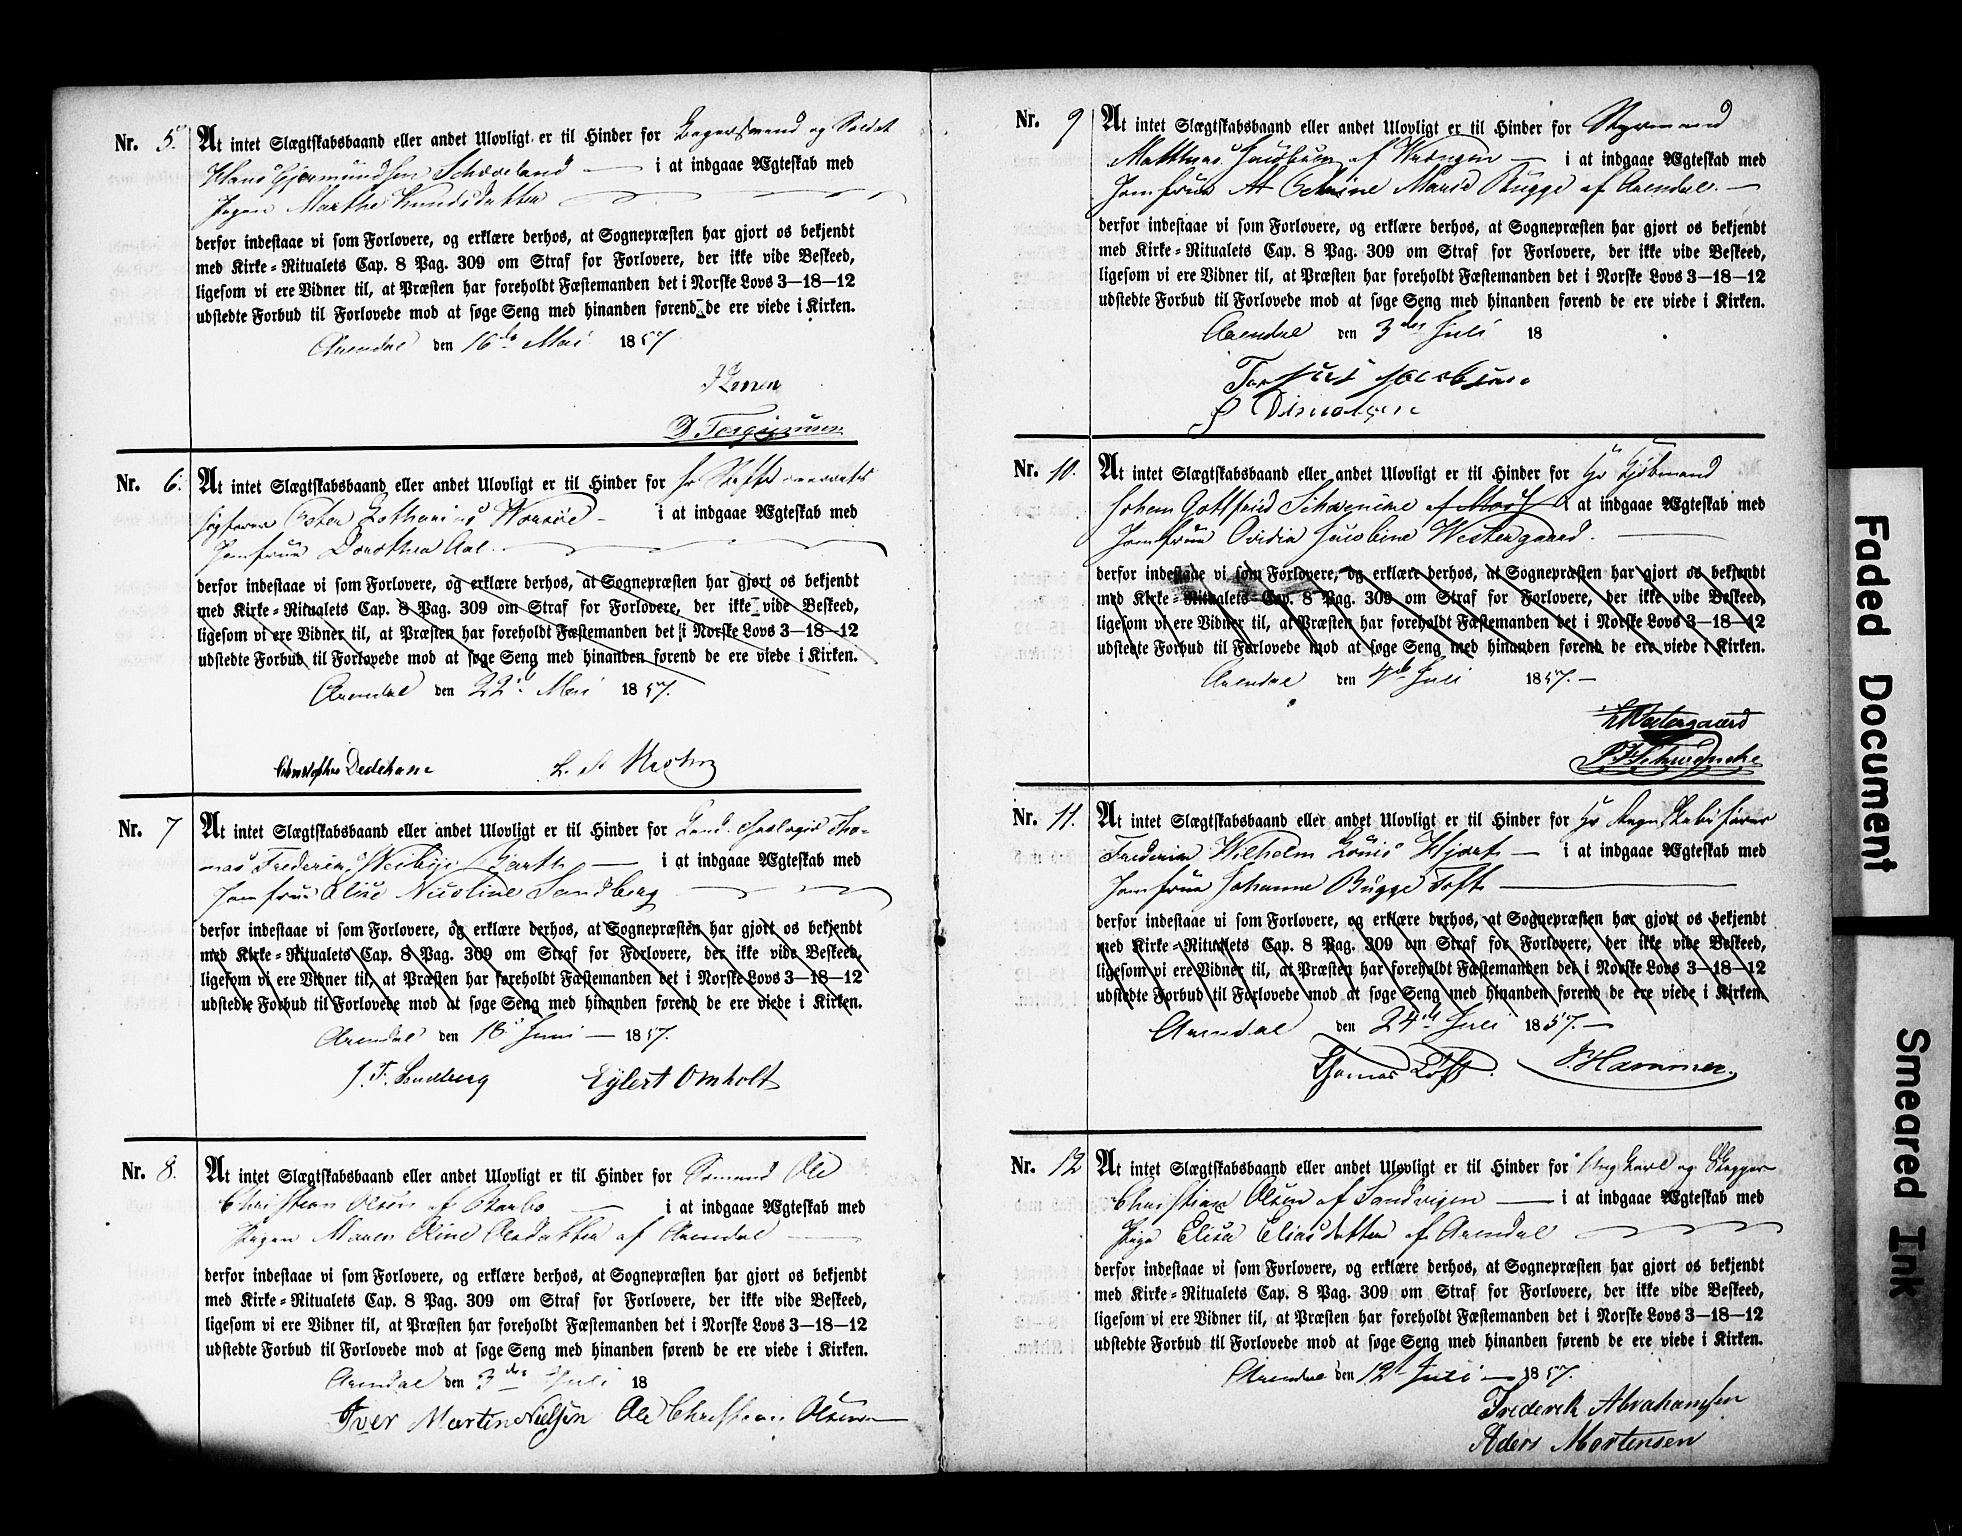 Nr. 5. At intet Slægtskabsbaand eller andet Ulovligt er til Hinder for og Soldat
Hans Gjermundsen i at indgaae Ægteskab med
Pigen Marthe Knudsdatter
derfor indestaae vi som Forlovere, og erklære derhos, at Sognepræsten har gjort os bekjendt
med Kirke-Ritualets Cap. 8 Pag. 309 om Straf for Forlovere, der ikke vide Beskeed,
ligesom vi ere Vidner til, at Præsten har foreholdt Fæstemanden det i Norske Lovs 3—18—12
udstedte Forbud til Forlovede mod at søge Seng med hinanden førend de ere viede i Kirken.
Arendal den 16de Mai 1857
Nr. 6. At intet Slægtskabsbaand eller andet Ulovligt er til Hinder for Hr
Peter i at indgaae Ægteskab med
Jomfrue Dorothea Aal.
derfor indestaae vi som Forlovere, og erklære derhos, at Sognepræsten har gjort os bekjendt
med Kirke-Ritualets Cap. 8 Pag. 309 om Straf for Forlovere, der ikke vide Beskeed,
ligesom vi ere Vidner til, at Præsten har foreholdt Fæstemanden det i Norske Lovs 3—18—12
udstedte Forbud til Forlovede mod at søge Seng med hinanden førend de ere viede i Kirken.
Arendal den 22d Mai 1857.
Christopher Dedekam
Nr. 7 At intet Slægtskabsbaand eller andet Ulovligt er til Hinder for Cand. theologiæ Tho-
mas Frederik Barth i at indgaae Ægteskab med
Jomfrue Elise Nicoline Sandberg
derfor indestaae vi som Forlovere, og erklære derhos, at Sognepræsten har gjort os bekjendt
med Kirke-Ritualets Cap. 8 Pag. 309 om Straf for Forlovere, der ikke vide Beskeed,
ligesom vi ere Vidner til, at Præsten har foreholdt Fæstemanden det i Norske Lovs 3—18—12
udstedte Forbud til Forlovede mod at søge Seng med hinanden førend de ere viede i Kirken.
Arendal den 18 Juni — 1857.
J. F. Sandberg Eylert Omholt
Nr. 8. At intet Slægtskabsbaand eller andet Ulovligt er til Hinder for Sømand Ole
Christian Olsen af Barbo i at indgaae Ægteskab med
Pigen Maren Oline Olsdatter af Arendal
derfor indestaae vi som Forlovere, og erklære derhos, at Sognepræsten har gjort os bekjendt
med Kirke-Ritualets Cap. 8 Pag. 309 om Straf for Forlovere, der ikke vide Beskeed,
ligesom vi ere Vidner til, at Præsten har foreholdt Fæstemanden det i Norske Lovs 3—18—12
udstedte Forbud til Forlovede mod at søge Seng med hinanden førend de ere viede i Kirken.
Arendal den 3die Juli 18
Iver Martin Nielsen Ole Christian Olsen
Nr. 9 At intet Slægtskabsbaand eller andet Ulovligt er til Hinder for Styrmand
Matthias Jacobsen af i at indgaae Ægteskab med
Jomfrue Marie Bugge af Arendal.
derfor indestaae vi som Forlovere, og erklære derhos, at Sognepræsten har gjort os bekjendt
med Kirke-Ritualets Cap. 8 Pag. 309 om Straf for Forlovere, der ikke vide Beskeed,
ligesom vi ere Vidner til, at Præsten har foreholdt Fæstemanden det i Norske Lovs 3—18—12
udstedte Forbud til Forlovede mod at søge Seng med hinanden førend de ere viede i Kirken.
Arendal den 3die Juli 18
Jacobsen
Nr. 10. At intet Slægtskabsbaand eller andet Ulovligt er til Hinder for Hr Kjøbmand
Johan Gottfried i at indgaae Ægteskab med
Jomfrue Ovidia Jacobine Westergaard.
derfor indestaae vi som Forlovere, og erklære derhos, at Sognepræsten har gjort os bekjendt
med Kirke-Ritualets Cap. 8 Pag. 309 om Straf for Forlovere, der ikke vide Beskeed,
ligesom vi ere Vidner til, at Præsten har foreholdt Fæstemanden det i Norske Lovs 3—18—12
udstedte Forbud til Forlovede mod at søge Seng med hinanden førend de ere viede i Kirken.
Arendal den 4de Juli 1857.
Westergaard
Nr. 11. At intet Slægtskabsbaand eller andet Ulovligt er til Hinder for Hr Regnskabsfører
Frederik Wilhelm Louis Hjort i at indgaae Ægteskab med
Jomfrue Johanne Bugge Toft
derfor indestaae vi som Forlovere, og erklære derhos, at Sognepræsten har gjort os bekjendt
med Kirke-Ritualets Cap. 8 Pag. 309 om Straf for Forlovere, der ikke vide Beskeed,
ligesom vi ere Vidner til, at Præsten har foreholdt Fæstemanden det i Norske Lovs 3—18—12
udstedte Forbud til Forlovede mod at søge Seng med hinanden førend de ere viede i Kirken.
Arendal den 24de Juli 1857.
Thomas Toft. Hammer.
Nr. 12 At intet Slægtskabsbaand eller andet Ulovligt er til Hinder for Ungkarl og
Christian Olsen af Sandvigen i at indgaae Ægteskab med
Pige Elise Eliasdatter af Arendal
derfor indestaae vi som Forlovere, og erklære derhos, at Sognepræsten har gjort os bekjendt
med Kirke-Ritualets Cap. 8 Pag. 309 om Straf for Forlovere, der ikke vide Beskeed,
ligesom vi ere Vidner til, at Præsten har foreholdt Fæstemanden det i Norske Lovs 3—18—12
udstedte Forbud til Forlovede mod at søge Seng med hinanden førend de ere viede i Kirken.
Arendal den 12t Juli — 1857.
Frederik Abrahamsen
Aders Mortensen
Faded Document
Smeared Ink